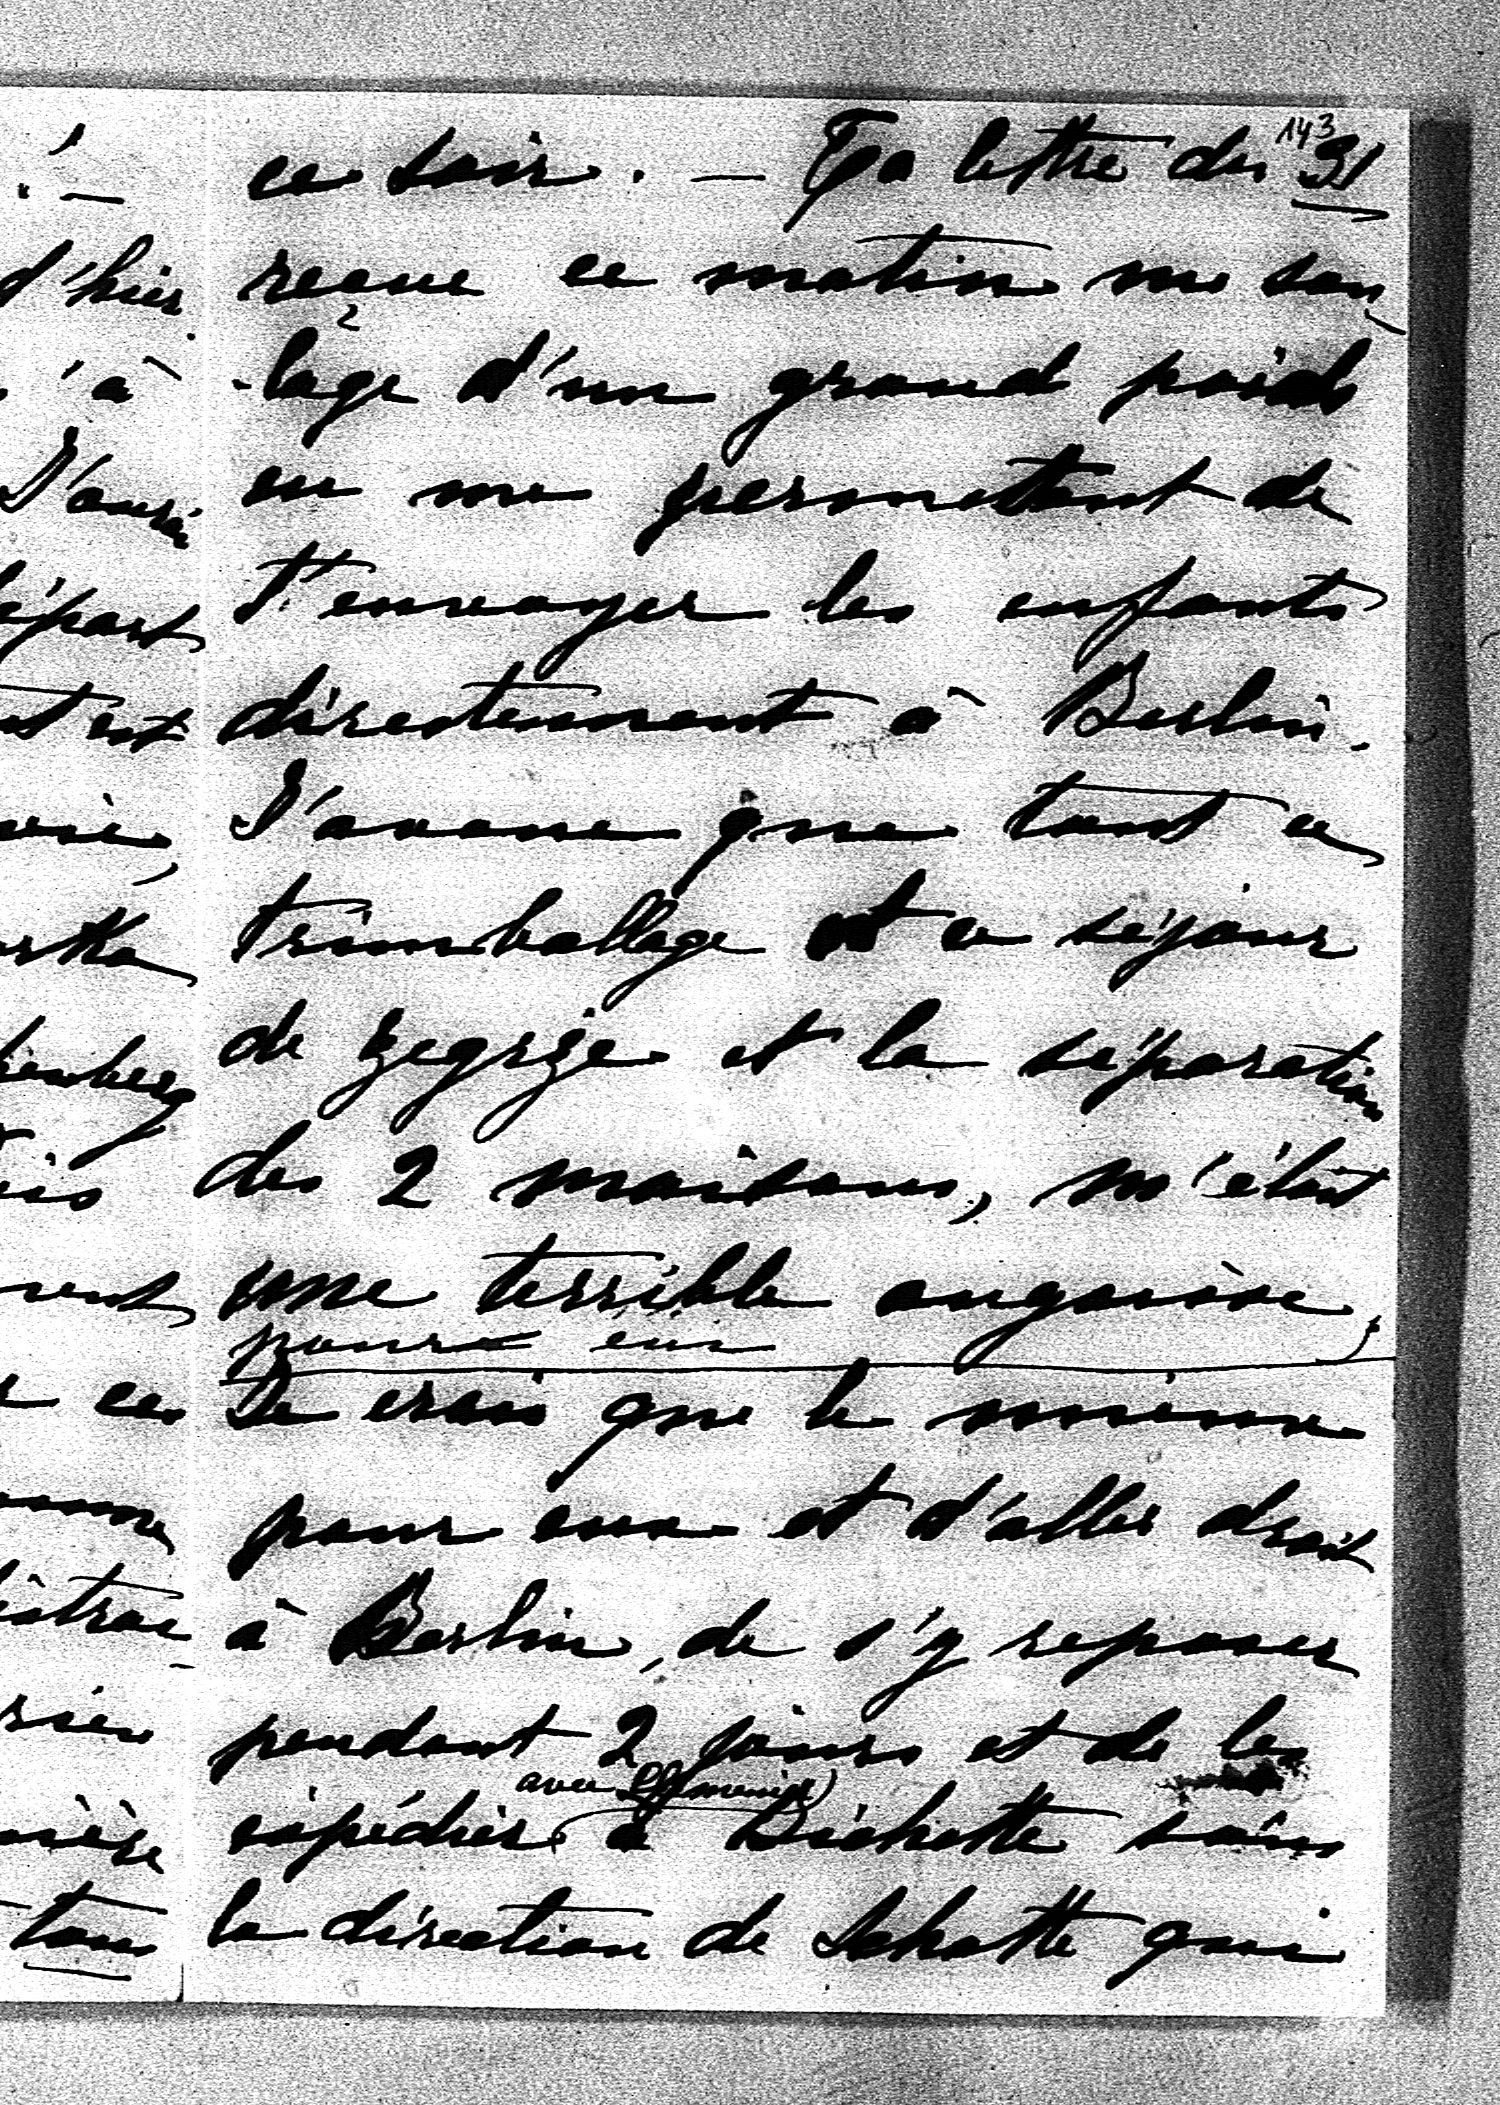 143
ce soir. — Ta lettre du 31
reçue ce matin me sou
-lage d'un grand poids
en me permettant de
t'envoyer les enfants
directement à Berlin.
J'avoue que tout ce
trimballage et ce séjour
de Zegrże et la séparation
des 2 maisons, m'était
une terrible angoisse,
pour eux
Je crois que le mieux
pour eux et d'aller droit
à Berlin, de s'y reposer
pendant 2 jours et de les
avec
expédier à Bichette sous
la direction de Schotte qui
d'hier.
à
J'aurai
départ
est
ces
rien
tous